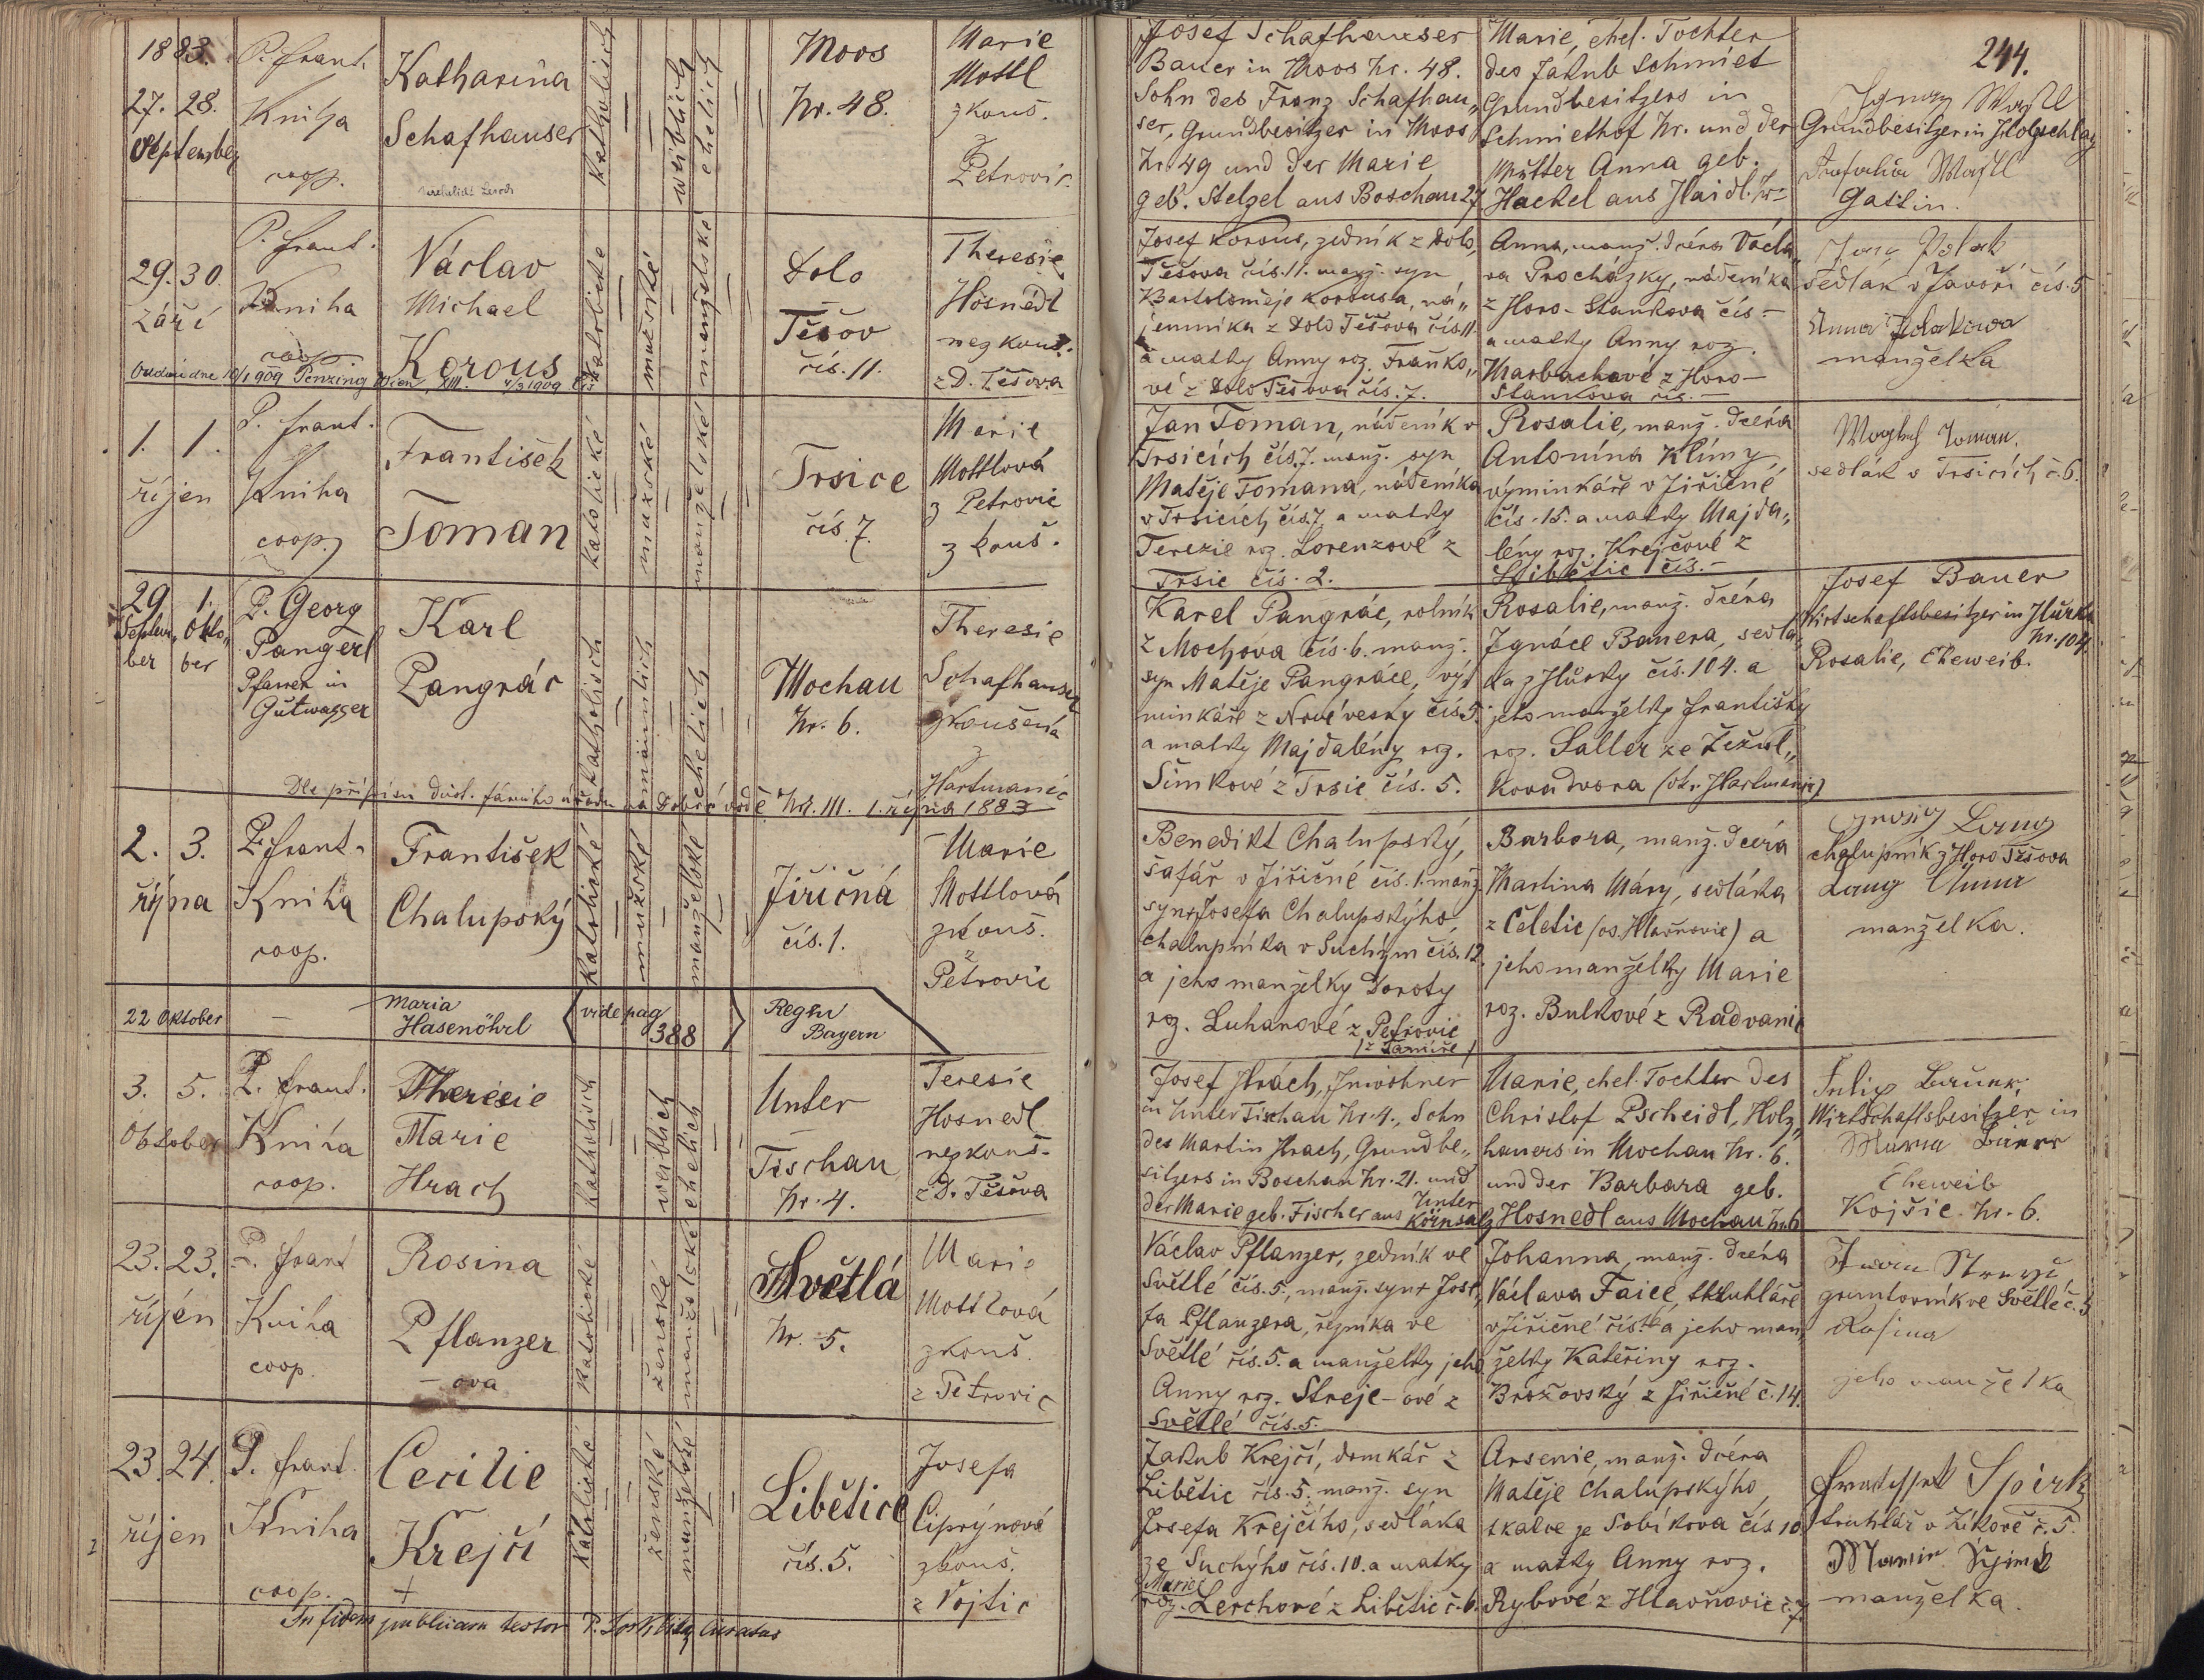 1883.
244.
27. 28.
September
P. Frant.
Kniha
coop.
Katharina
Schafhauser
katholisch
weiblich
ehelich
Moos
Nr. 48.
Marie
Mottl
zkouš.
z
Petrovic
Josef Schafhauser
Bauer in Moos Nr. 48.
Sohn des Franz Schafhau„
ser, Grundbesitzer in Moos
Nr. 49 und der Marie
geb. Stelzel aus Boschau 27
Marie, ehel. Tochter
des Jakub Schmiet
Grundbesitzers in
Schmiethof Nr. und der
Mutter Anna geb.
Hackel aus Haidl. Nr –
Ignaz
Grundbesitzer in Holzschlag
Gattin.
29. 30.
září
P. Frant.
Kniha
coop.
Václav
Michael
Korous
Oddán dne 10/1 909 Penzing Wien, XIII. 4/3 1909
katolické
mužské
manželské
Dolo
Těšov
čís. 11.
Theresie
Hosnedl
nezkouš.
z D. Těšova
Josef Korous, zedník z Dolo„
Těšova čís. 11. manž. syn
Bartoloměje Korousa, ná„
jemníka z Dolo Těšova čís. 11
a matky Anny roz. Franko„
vé z Dolo Těšova čís. 7.
Anna, manž. dcéra Václa„
va Procházky, nádeníka
z Horo-Stankova čís –
a matky Anny roz.
Marbachové z Horo–
Stankova čís. –
Polak
sedlák v Javoří čís. 5
Anna Polakova
manželka
1. 1.
říjen
P. Frant.
Kniha
coop.
František
Toman
katolické
mužské
manželské
Trsice
čís. 7.
Marie
Mottlová
z Petrovic
zkouš.
Jan Toman, nádeník v
Trsicích čís. 7. manž. syn
Matěje Tomana, nádeníka
v Trsicích čís 7. a matky
Terezie roz. Lorenzové z
Trsic čís. 2.
Rosalie, manž. dcéra
Antonína Klímy,
výminkáře v Jiřičné
čís. 15. a matky Majda„
lény roz. Krejčové z
Libětic čís. –
Toman.
sedlák v Trsicích č. 6.
29. 1.
Septem„ Okto„
ber ber
P. Georg
Pangerl
Pfarrer in
Gutwasser
Karl
Pangrác
katholisch
männlich
ehelich
Mochau
Nr. 6.
Theresie
Schafhauser
zkoušená
z
Hartmanic
Dle přípisu důst. farního úřadu na Dobré vodě Nr. 111. 1. října 1883
Karel Pangrác, rolník
z Mochova čís. 6. manž.
syn Matěje Pangráce, vý„
minkáře z Nové vesky čís 5.
a matky Majdalény roz.
Šimkové z Trsic čís. 5.
Rosalie, manž. dcéra
Ignáce Bauera, sedlá„
ka z Hůrky čís. 104. a
jeho manželky Františky
roz. Saller ze Žežul„
kova dvora (ob. Hartmanic)
Josef Bauer
Wirtschaftsbesitzer in Hůrka
Nr. 104.
Rosalie, Eheweib.
2. 3.
října
P. Frant.
Kniha
coop.
František
Chalupský
katolické
mužské
manželské
Jiřičná
čís. 1.
Marie
Mottlová
zkouš.
z
Petrovic
Benedikt Chalupský,
šafář v Jiřičné čís. 1. manž.
syn Josefa Chalupskýho
chalupníka v Suchým čís. 12.
a jeho manželky Doroty
roz. Luhanové z Petrovic
Barbora, manž. dcéra
Martina Máry, sedláka
z Čeletic (os. Hlavňovic) a
jeho manželky Marie
roz. Bulkové z Radvanic
chalupník z Horo Těšova
manželka.
22 Oktober
—
Maria
Hasenöhrl
vide pag
388
Regen
Bayern
3. 5.
Oktober
P. Frant.
Kniha
coop.
Theresie
Marie
Hrach
katholisch
weiblich
ehelich
Unter
Tischau
Nr. 4.
Teresie
Hosnedl
nezkouš.
z D. Těšova
Josef Hrách, Inwohner
in Unter Tischau Nr. 4., Sohn
des Martin Hrach, Grundbe„
sitzers in Boschau Nr. 21. und
der Marie geb. Fischer aus Unter
Körnsalz
Marie, ehel. Tochter des
Christof Pscheidl, Holz„
hauers in Mochau Nr. 6.
und der Barbara geb.
Hosnedl aus Mochau Nr. 6
Wirtschaftsbesitzer in
Eheweib
Kojšic Nr. 6.
23. 23.
říjen
P. Frant
Kniha
coop.
Rosina
Pflanzer
– ova
katolické
ženské
manželské
Světlá
Nr. 5.
Marie
Mottlová
zkouš.
z Petrovic
Václav Pflanzer, zedník ve
Světlé čís. 5., manž. syn Jose„
fa Pflanzera, řezníka ve
Světlé čís. 5. a manželky jeho
Anny roz. Streje–ové z
Světlé čís. 5.
Johanna, manž. dcéra
Václava Faice, truhláře
v Jiřičné čís. a jeho man„
želky Kateřiny roz.
Brožovský z Jiřičné č. 14.
gruntovník ve Světlé č. 5
Rosina
jeho manželka
23. 24.
říjen
P. Frant.
Kniha
coop.
Cecilie
Krejčí
+
katolické
ženské
manželské
Libětice
čís. 5.
Josefa
Ciprýnová
zkouš.
z Vojtic
Jakub Krejčí, domkář z
Libětic čís. 5. manž. syn
Josefa Krejčího, sedláka
ze Suchýho čís. 10. a matky
Marie
roz. Lerchové z Libětic č. 6.
Arsenie, manž. dcéra
Matěje Chalupskýho,
tkalce ze Sobíkova čís 10
a matky Anny roz.
Rybové z Hlavňovic č. 7
Špirk
truhlář v Žikově č. 5.
manželka.
In fidem publicam testor P.